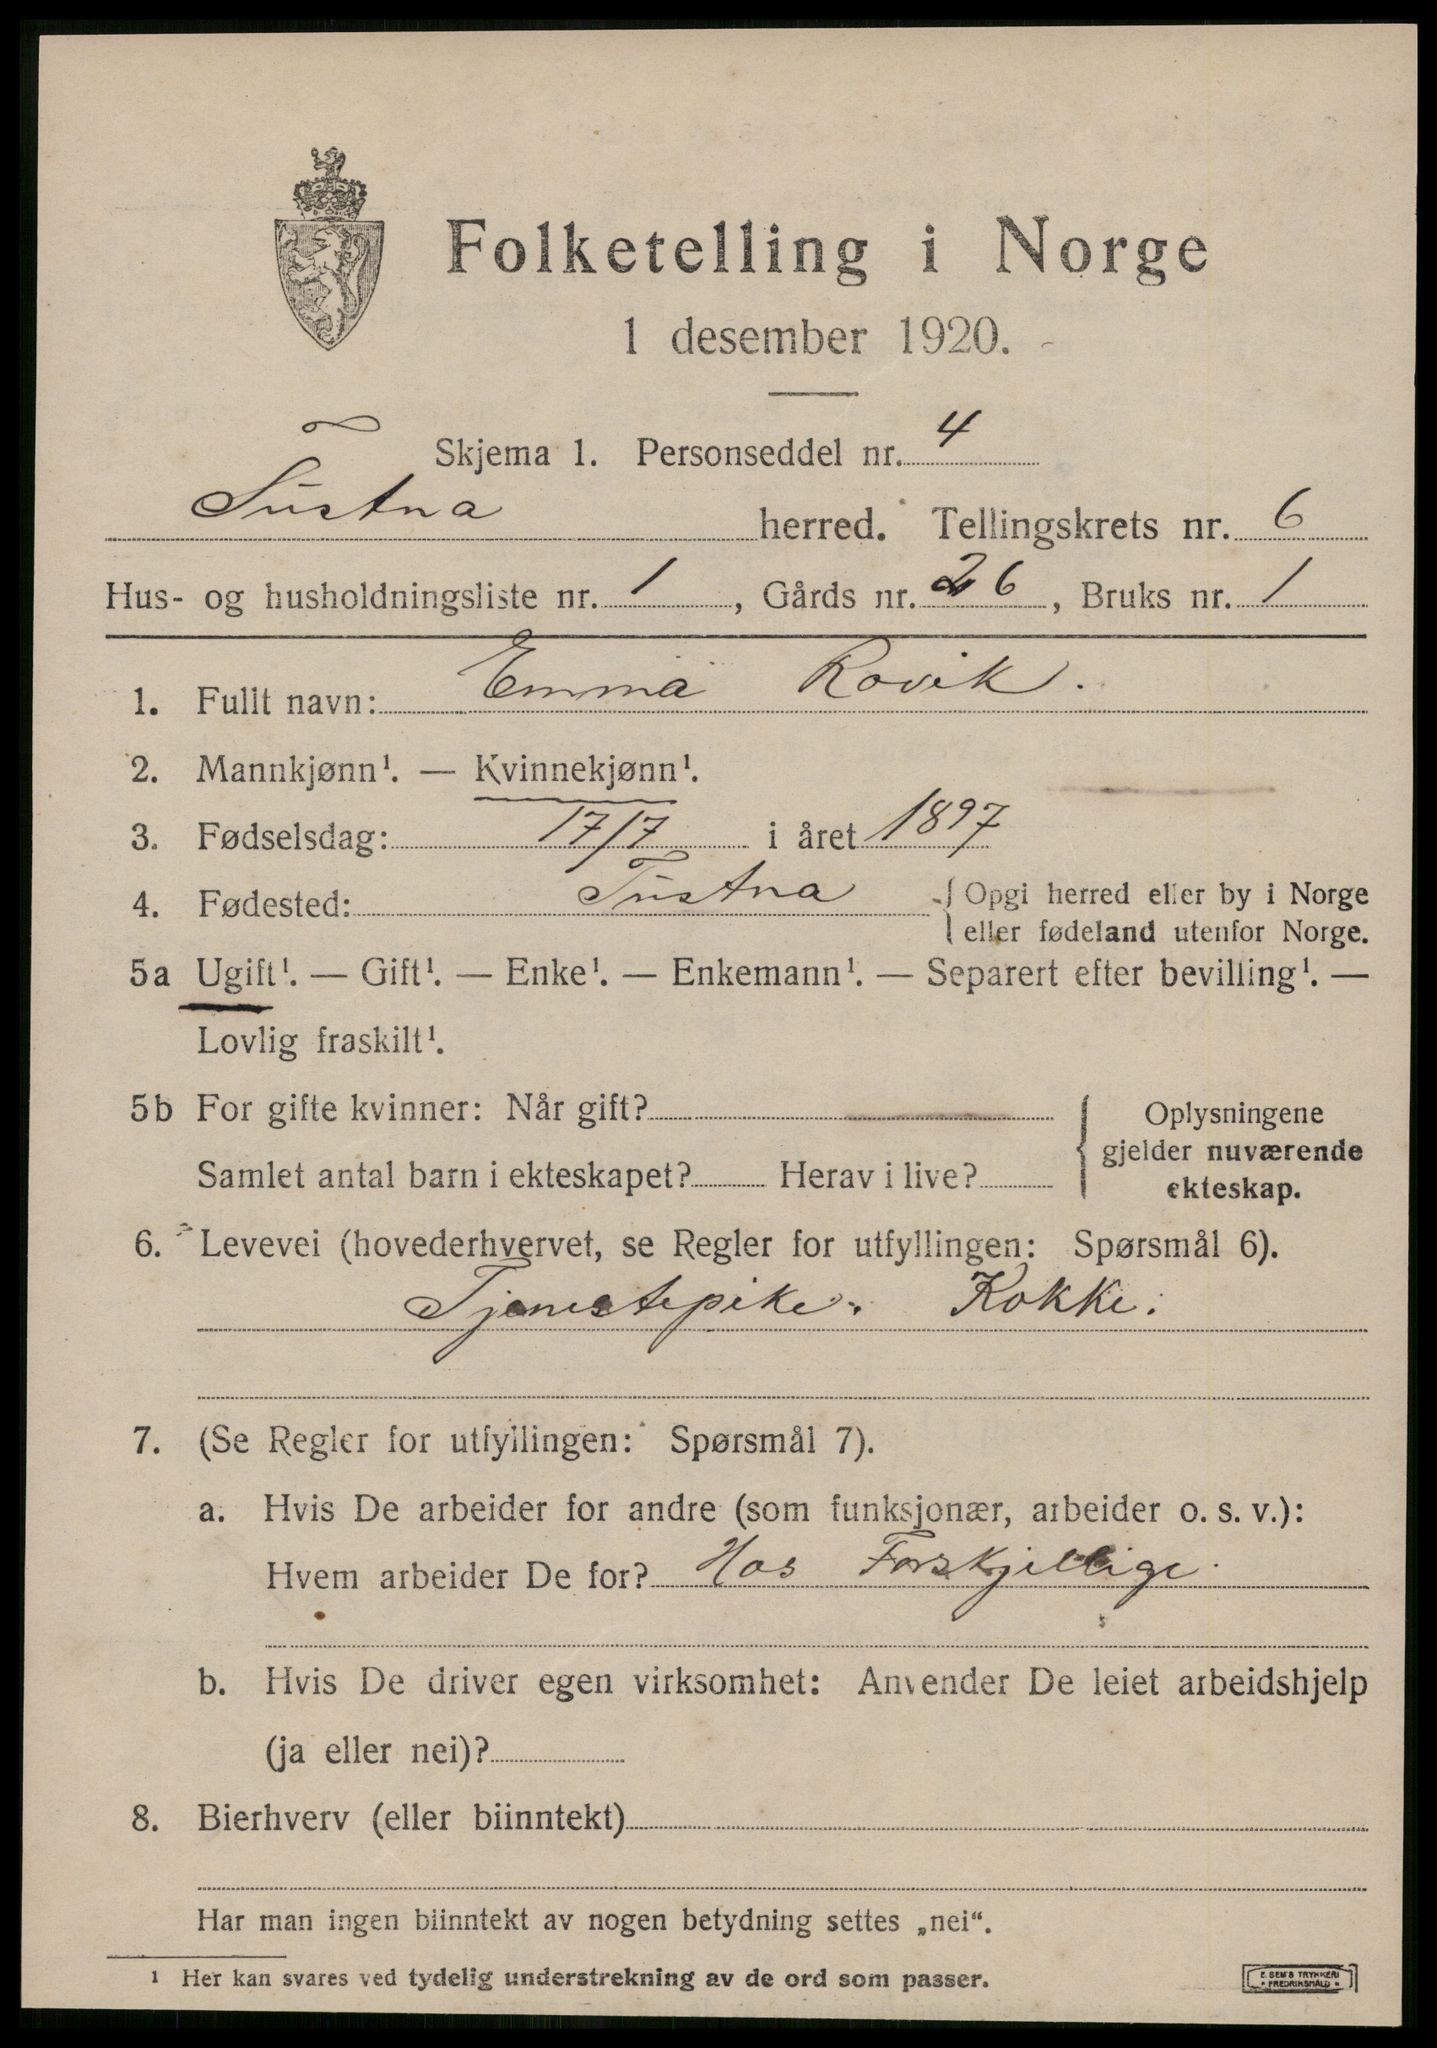 Folketelling i Norge
1 desember 1920.
Skjema 1. Personseddel nr. 4
Tustna herred. Tellingskrets nr. 6
Hus- og husholdningsliste nr. 1, Gårds nr. 26, Bruks nr. 1
1. Fullt navn: Emma Rovik.
2. Mannkjønn¹. — Kvinnekjønn¹.
3. Fødselsdag: 17/7 i året 1897
4. Fødested: Tustna { Opgi herred eller by i Norge
eller fødeland utenfor Norge.
5a Ugift¹. — Gift¹. — Enke¹. — Enkemann¹. — Separert efter bevilling¹. —
Lovlig fraskilt¹.
5b For gifte kvinner: Når gift? { Oplysningene
gjelder nuværende
Samlet antal barn i ekteskapet? Herav i live? ekteskap.
6. Levevei (hovederhvervet, se Regler for utfyllingen: Spørsmål 6).
Tjenestepike. Kokke.
7. (Se Regler for utfyllingen: Spørsmål 7).
a. Hvis De arbeider for andre (som funksjonær, arbeider o. s. v.):
Hvem arbeider De for? Hos Forskjellige.
b. Hvis De driver egen virksomhet: Anvender De leiet arbeidshjelp
(ja eller nei)?
8. Bierhverv (eller biinntekt)
Har man ingen biinntekt av nogen betydning settes „nei“.
¹ Her kan svares ved tydelig understrekning av de ord som passer.
E. SEM'S TRYKKERI
FREDRIKSHALD